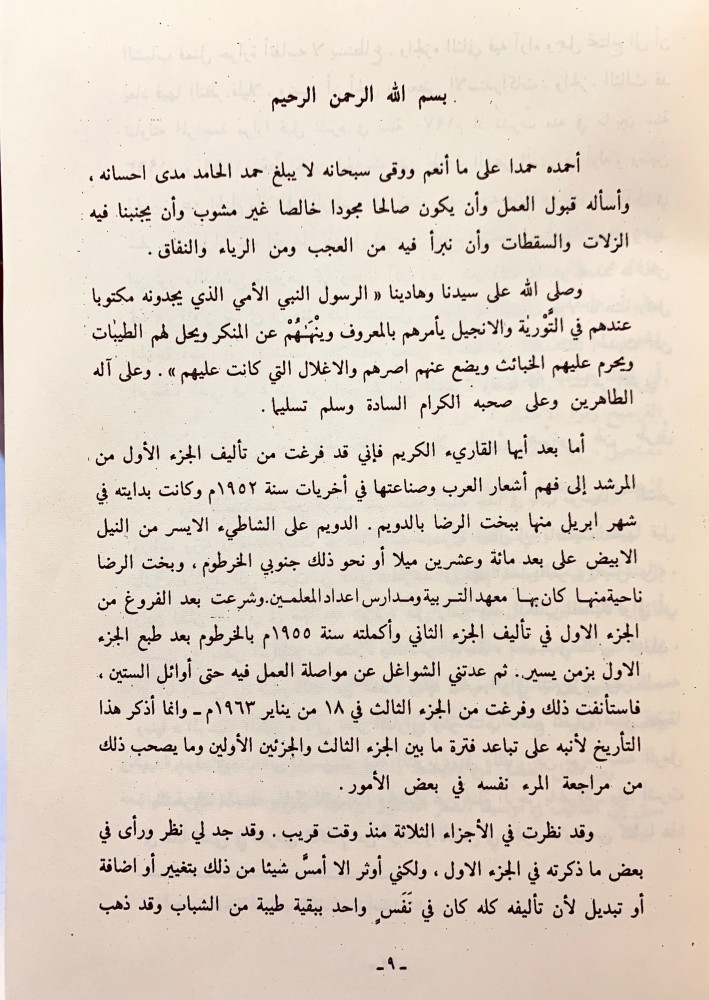 بسم الله الرحمن الرحيم
أحمده حمدا على ما أنعم ووقى سبحانه لا يبلغ حمد الحامد مدى احسانه ،
وأسأله قبول العمل وأن يكون صالحا مجودا خالصا غير مشوب وأن يجنبنا فيه
الزلات والسقطات وأن نبرأ فيه من العجب ومن الرياء والنفاق .
وصلى الله على سيدنا وهادينا « الرسول النبي الأمي الذي يجدونه مكتوبا
عندهم في التَّوْرىٰة والانجيل يأمرهم بالمعروف وينْهَـٰـهُمْ عن المنكر ويحل لهم الطيبٰات
ويحرم عليهم الخبائث ويضع عنهم اصرهم والاغلال التي كانت عليهم » . وعلى آله
الطاهرين وعلى صحبه الكرام السادة وسلم تسليما .
أما بعد أيها القاريء الكريم فإني قد فرغت من تأليف الجزء الأول من
المرشد إلى فهم أشعار العرب وصناعتها في أخريات سنة ١٩٥٢م وكانت بدايته في
شهر ابريل منها ببخت الرضا بالدويم . الدويم على الشاطيء الايسر من النيل
الابيض على بعد مائة وعشرين ميلا أو نحو ذلك جنوبي الخرطوم ، وبخت الرضا
ناحية منها كان بها معهد التربية ومدارس اعداد المعلمين. وشرعت بعد الفروغ من
الجزء الاول في تأليف الجزء الثاني وأكملته سنة ١٩٥٥م بالخرطوم بعد طبع الجزء
الاول بزمن يسير.. ثم عدتني الشواغل عن مواصلة العمل فيه حتى أوائل الستين ،
فاستأنفت ذلك وفرغت من الجزء الثالث في ١٨ من يناير ١٩٦٣م ـ وانما أذكر هذا
التأريخ لأنبه على تباعد فترة ما بين الجزء الثالث والجزئين الأولين وما يصحب ذلك
من مراجعة المرء نفسه في بعض الأمور .
وقد نظرت في الأجزاء الثلاثة منذ وقت قريب . وقد جد لي نظر ورأى في
بعض ما ذكرته في الجزء الاول ، ولكني أوثر الا أمسَّ شيئا من ذلك بتغيير أو اضافة
أو تبديل لأن تأليفه كله كان في نَفَسٍ واحد ببقية طيبة من الشباب وقد ذهب
ـ ٩ ـ